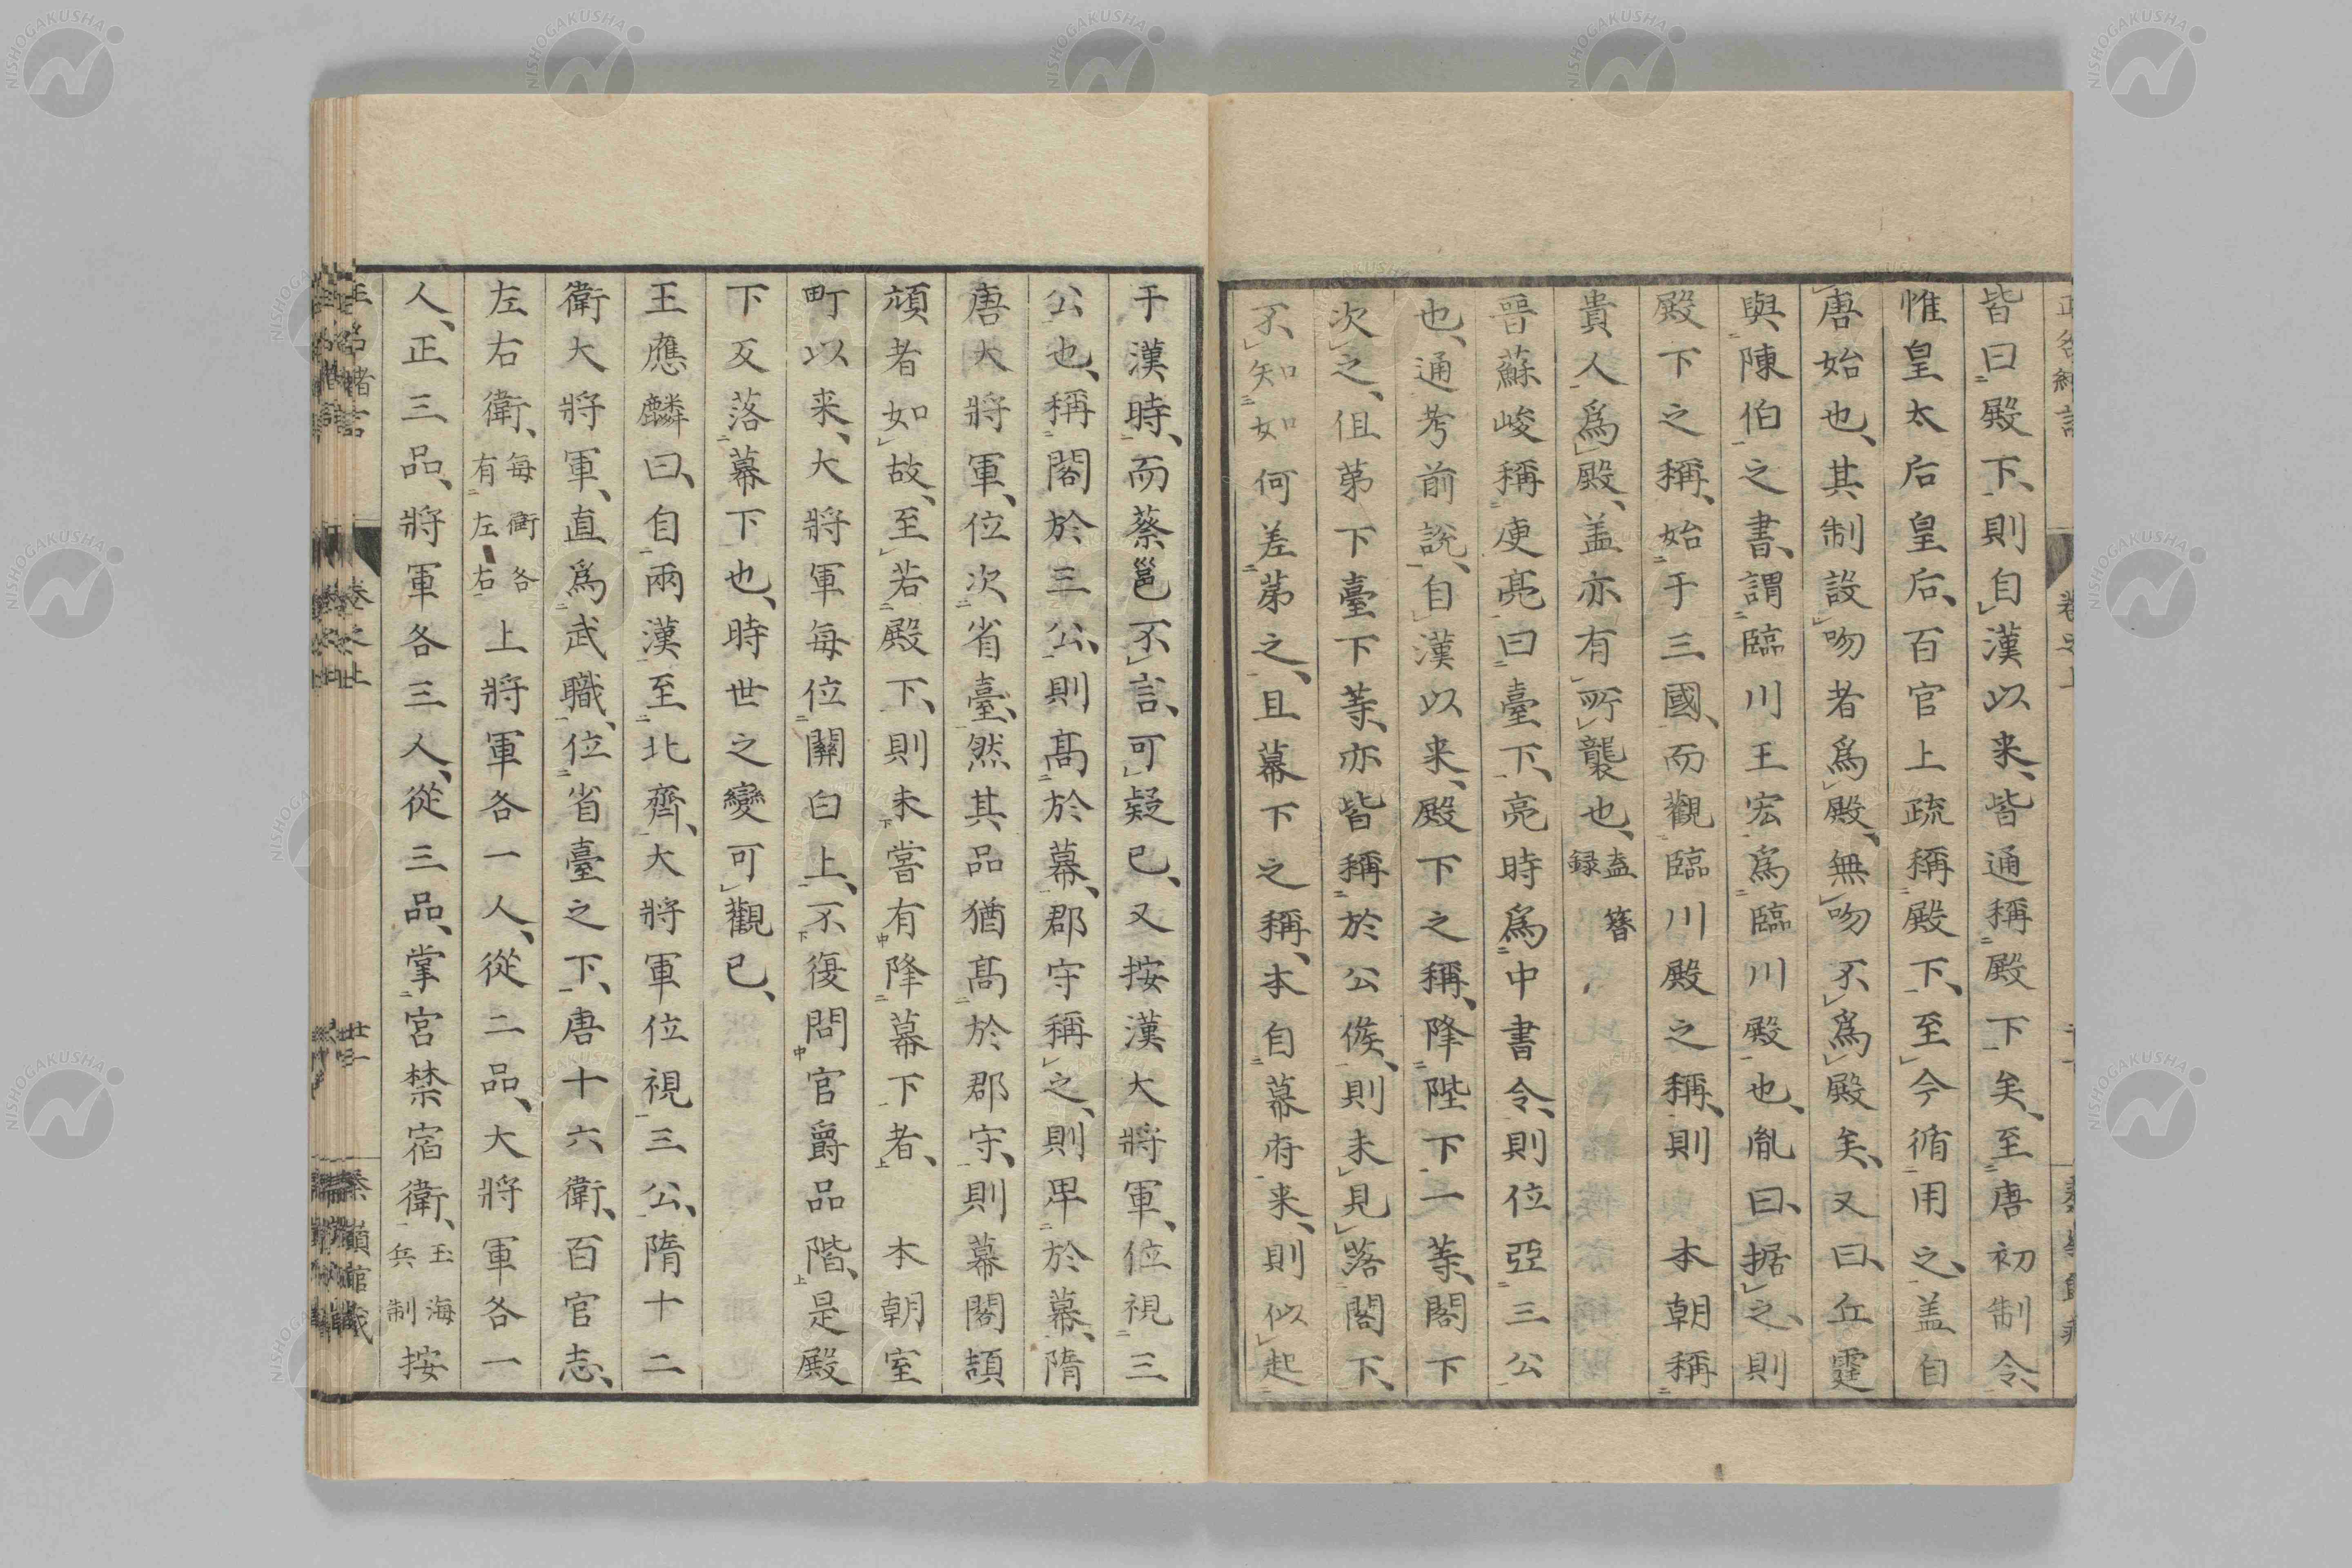 皆曰殿下、則自漢以来、皆通稱殿下矣、至唐初制令、
惟皇太后皇后、百官上疏稱殿下、至今循用之、盖自
唐始也、其制設吻者爲殿、無吻不爲殿矣、又曰、丘霆
與陳伯之書、謂臨川王宏爲臨川殿也、胤曰、据之、則
殿下之稱、始于三國、而觀臨川殿之稱、則 本朝稱
貴人爲殿、盖亦有所襲也、盍簪録
晉蘇峻稱庾亮曰臺下、亮時爲中書令、則位亞三公
也、通考前說、自漢以来、殿下之稱、降陛下一等、閣下
次之、但苐下臺下等、亦皆稱於公侯、則未見落閣下、
不知如何差苐之、且幕下之稱、本自幕府来、則似起
于漢時、而蔡邕不言、可疑已、又按漢大將軍、位視三
公也、稱閣於三公、則高於幕、郡守稱之、則卑於幕、隋
唐大將軍、位次省臺、然其品猶高於郡守、則幕閣頡
頏者如故、至若殿下、則未嘗有降幕下者、 本朝室
町以来、大將軍每位關白上、不復問官爵品階、是殿
下反落幕下也、時世之變可觀已、
王應麟曰、自兩漢至北齊、大將軍位視三公、隋十二
衛大將軍、直爲武職、位省臺之下、唐十六衛、百官志、
左右衛、每衛各有左右上將軍各一人、從二品、大將軍各一
人、正三品、將軍各三人、從三品、掌宮禁宿衛、玉海兵制按
卷之上